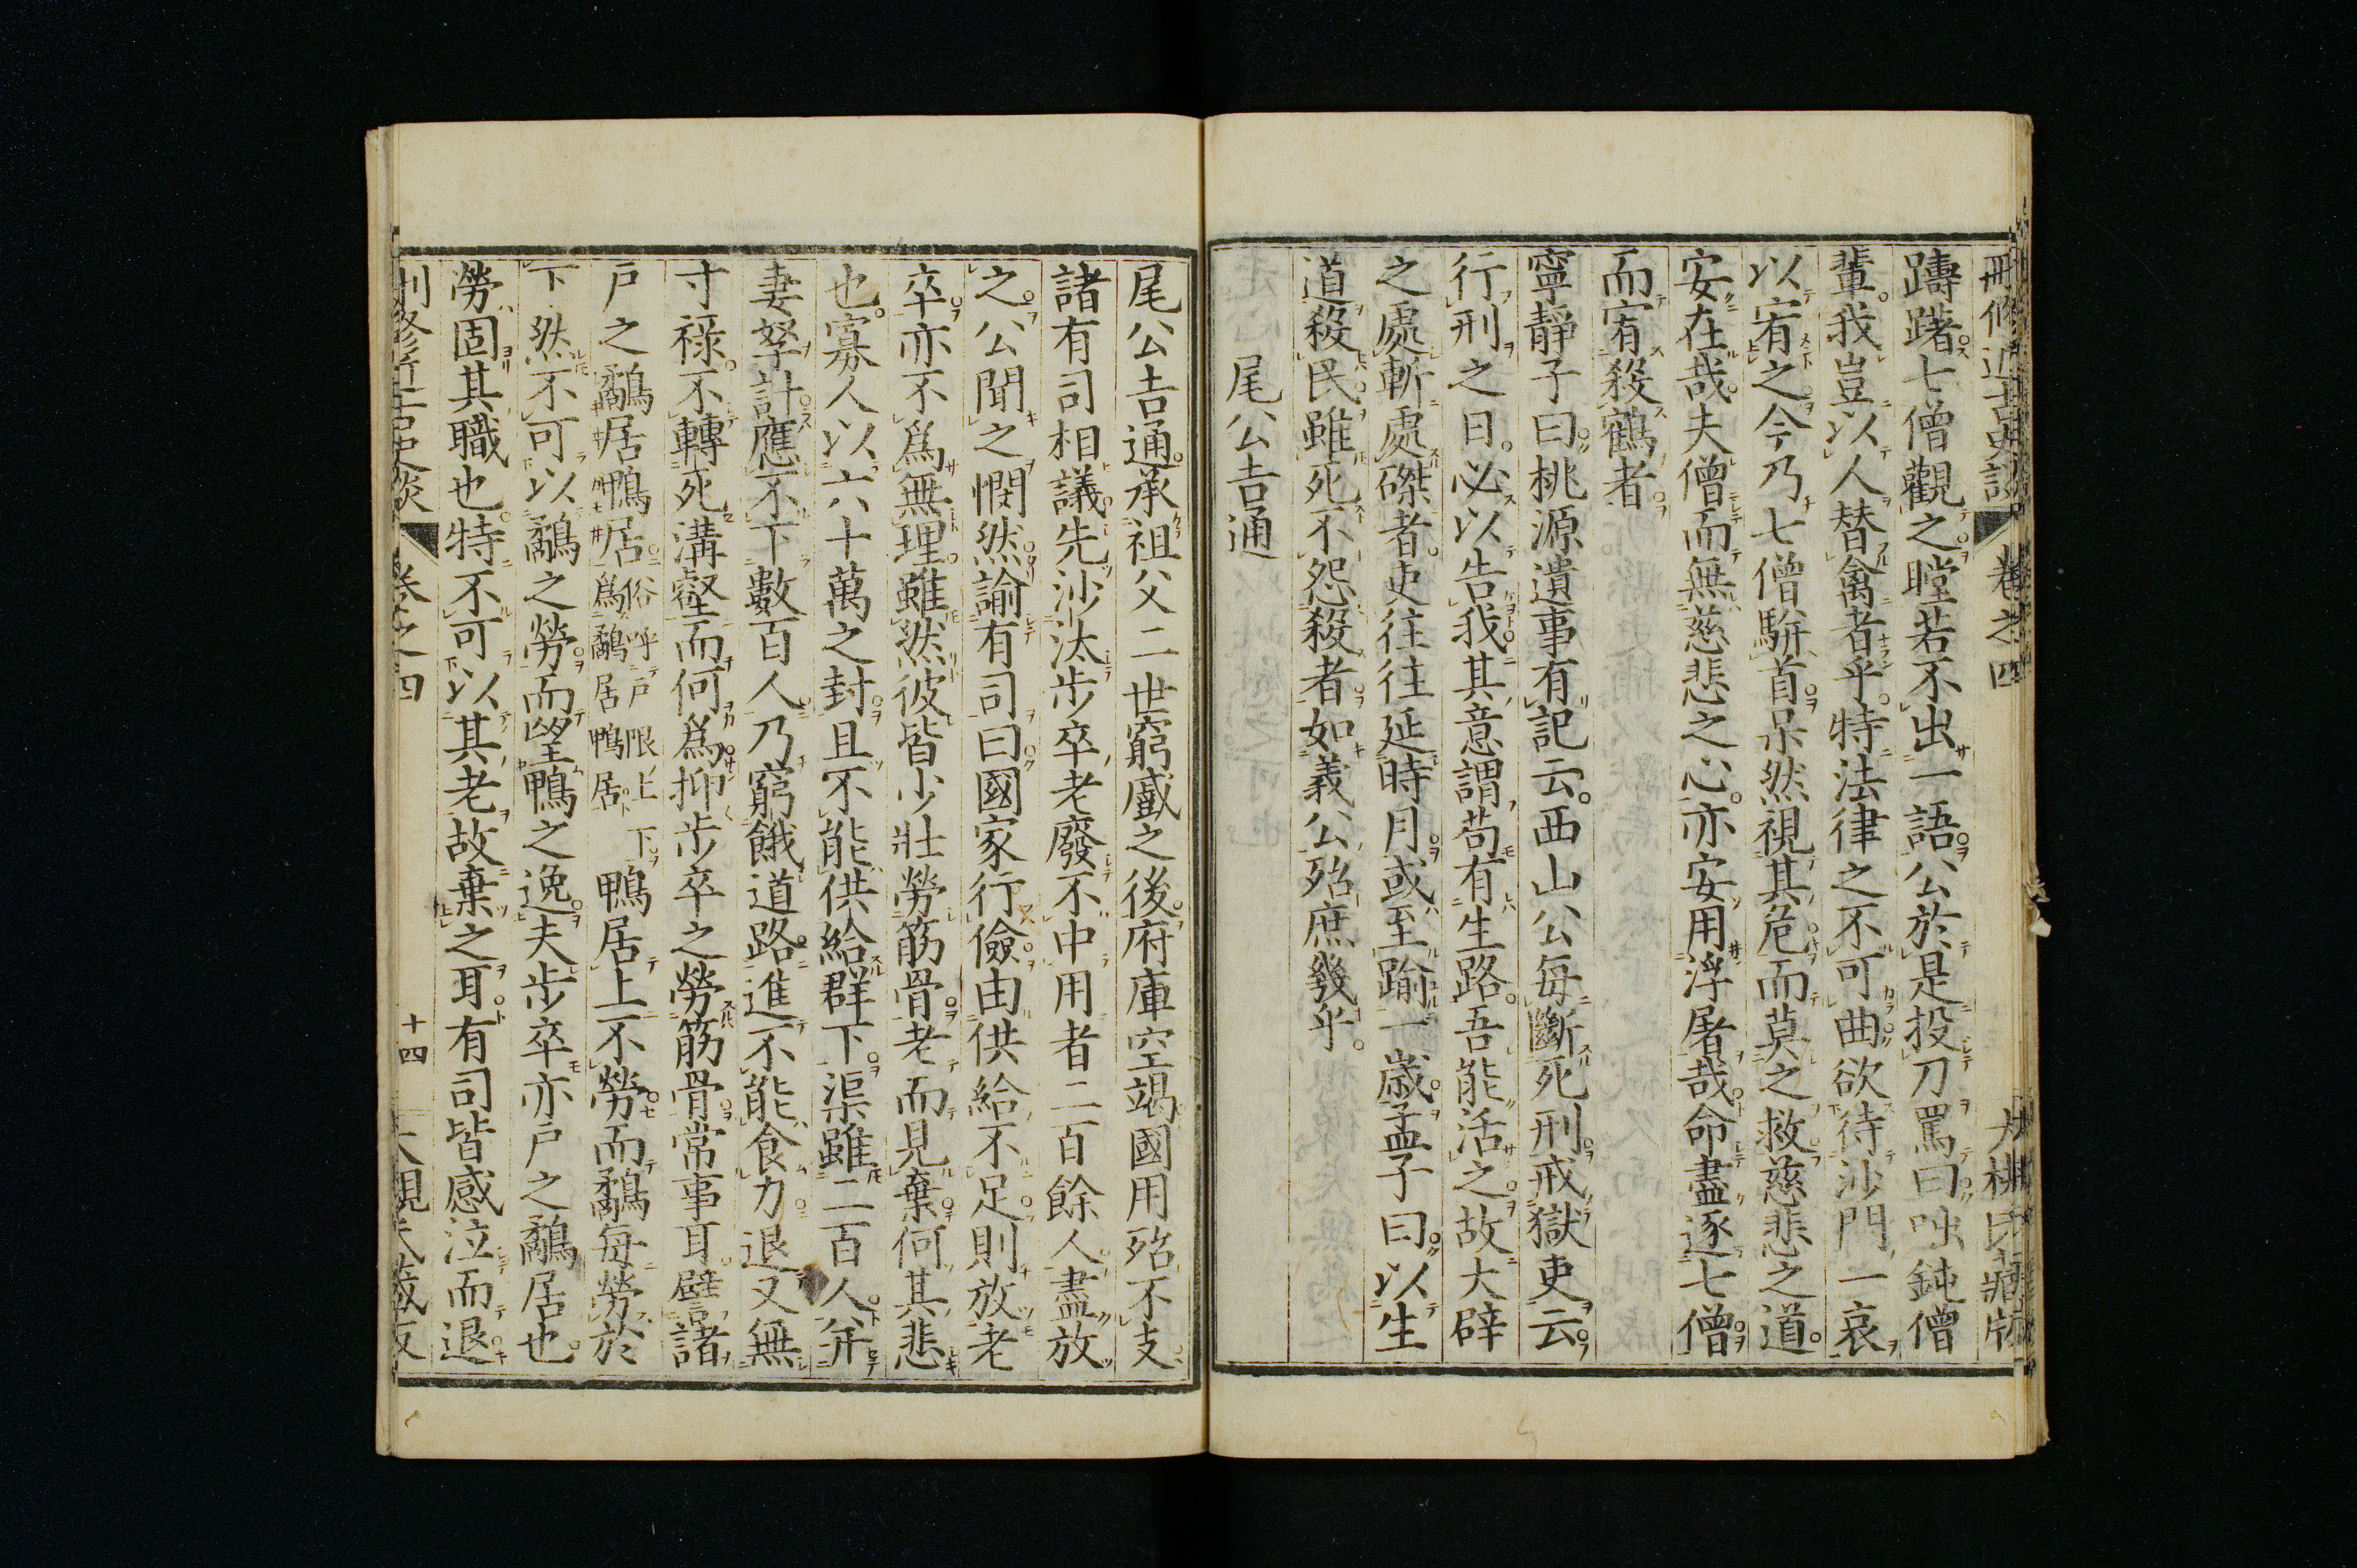 躊躇七僧觀之瞠若不出一語公於是投刀罵曰咄鈍僧
輩我豈以人替禽者乎特法律之不可曲欲待沙門一哀
以宥之今乃七僧駢首呆然視其危而莫之救慈悲之道
安在哉夫僧而無慈悲之心亦安用浮屠哉命盡逐七僧
而宥殺鶴者
寧靜子曰桃源遺事有記云西山公每斷死刑戒獄吏云
行刑之日必以告我其意謂苟有生路吾能活之故大辟
之處斬處磔者吏往往延時月或至踰一歲孟子曰以生
道殺民雖死不怨殺者如義公殆庶幾乎
尾公吉通
尾公吉通承祖父二世窮盛之後府庫空竭國用殆不支
諸有司相議先沙汰步卒老廢不中用者二百餘人盡放
之公聞之憫然諭有司曰國家行儉由供給不足則放老
卒亦不爲無理雖然彼皆少壯勞筋骨老而見棄何其悲
也寡人以六十萬之封且不能供給群下渠雖二百人幷
妻孥計應不下數百人乃窮餓道路進不能食力退又無
寸祿不轉死溝壑而何爲抑步卒之勞筋骨常事耳譬諸
戶之鷸居鴨居俗呼戶限上下爲鷸居鴨居鴨居上不勞而鷸每勞於
下然不可以鷸之勞而望鴨之逸夫步卒亦戶之鷸居也
勞固其職也特不可以其老故棄之耳有司皆感泣而退
卷之四
十四